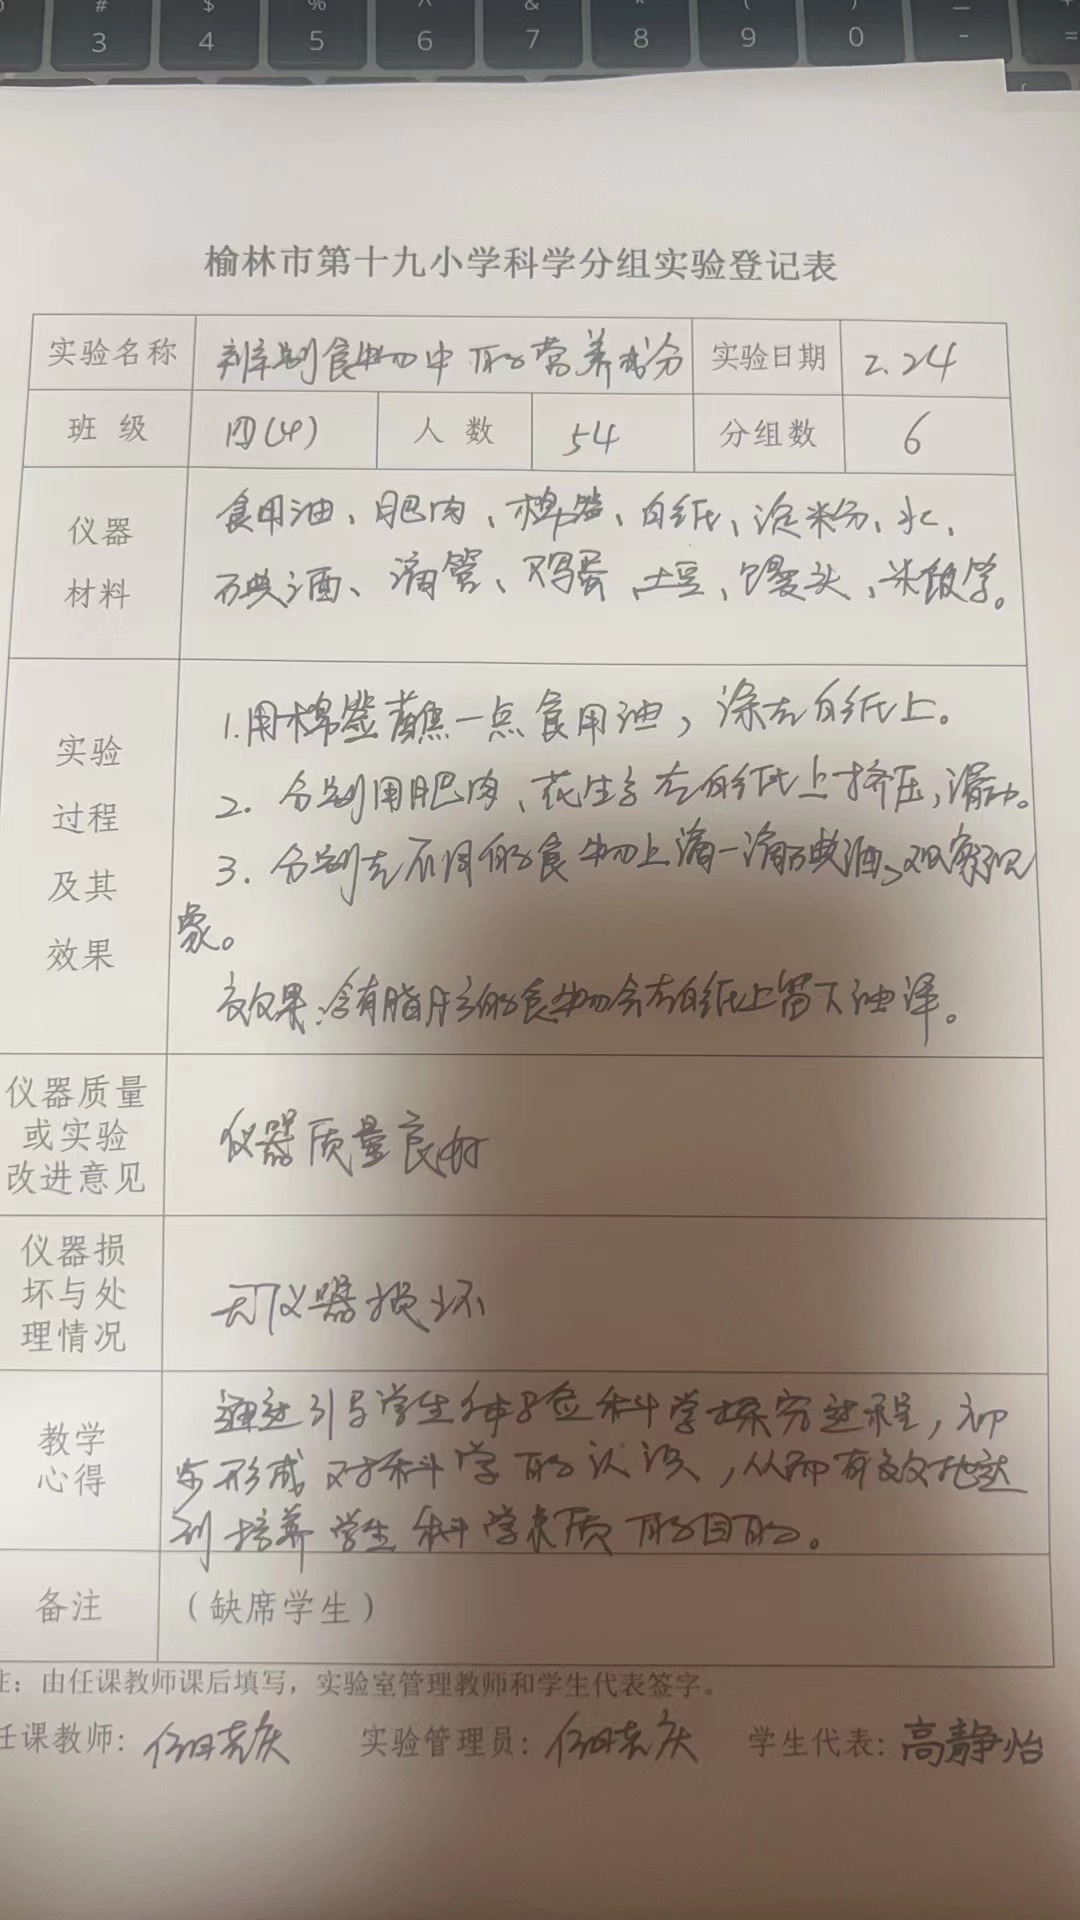 # $ % ^ & * ( ) _ +
3 4 5 6 7 8 9 0 - =
榆林市第十九小学科学分组实验登记表
实验名称 辨别食物中的营养成分 实验日期 2.24
班 级 四(4) 人 数 54 分组数 6
仪器
材料
食用油、肥肉、棉签、白纸、淀粉、水、
碘酒、滴管、鸡蛋、土豆、馒头、米饭等。
实验
过程
及其
效果
1.用棉签蘸一点食用油,涂在白纸上。
2. 分别用肥肉、花生等在白纸上挤压,滑动。
3. 分别在不同的食物上滴一滴碘酒,观察现
象。
效果:含有脂肪的食物会在白纸上留下油泽。
仪器质量
或实验
改进意见
仪器质量良好
仪器损
坏与处
理情况
无仪器损坏
教学
心得
通过引导学生体验科学探究过程,初
步形成对科学的认识,从而有效地达
到培养学生科学素质的目的。
备注 (缺席学生)
注:由任课教师课后填写,实验室管理教师和学生代表签字。
任课教师: 实验管理员: 学生代表:高静怡